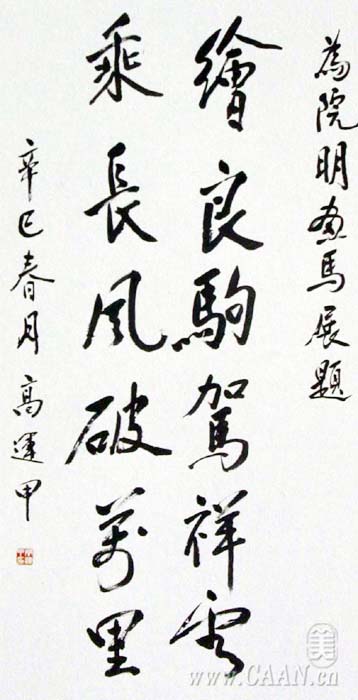 為院明画馬展題
繪良駒駕祥雲
乘長風破萬里
辛巳春月高運甲
美
www.CAAN.cn